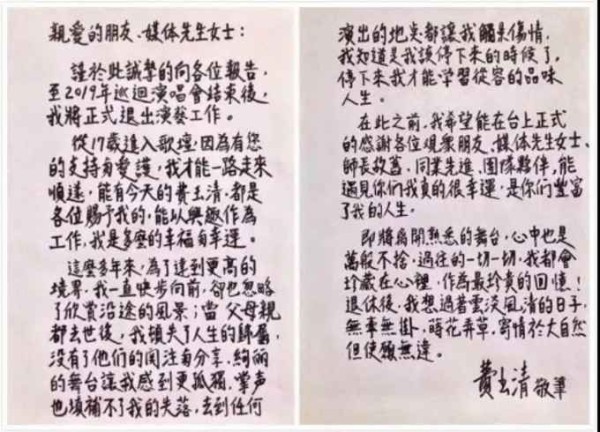 親愛的朋友、媒体先生女士：
謹於此誠摯的向各位報告，
至2019年巡迴演唱會结束後，
我將正式退出演藝工作。
從17歲進入歌壇，因為有您
的支持与愛護，我才能一路走來
順遂，能有今天的費玉清，都是
各位賜予我的，能以興趣作為
工作，我是多麼的幸福与幸運。
這麼多年來，為了達到更高的
境界，我一直快步向前，卻也忽略
了欣賞沿途的風景；當父母親
都去世後，我頓失了人生的歸屬，
沒有了他們的関注与分享，絢麗
的舞台讓我感到更孤獨，掌声
也填補不了我的失落，去到任何
演出的地点都讓我觸景傷情，
我知道是我該停下來的時候了，
停下來我才能学習從容的品味
人生。
在此之前，我希望能在台上正式
的感謝各位观衆朋友、媒体先生女士、
師長故舊、同業先進、團隊夥伴，能
遇見你们我真的很幸運，是你們豐富
了我的人生。
即將离開熟悉的舞台，心中也是
萬般不捨，過往的一切一切，我都會
珍藏在心裡，作為最珍貴的回憶！
退休後，我想過著雲淡風清的日子，
無牽無掛，蒔花弄草，寄情於大自然
但使願無違。
費玉清 敬筆